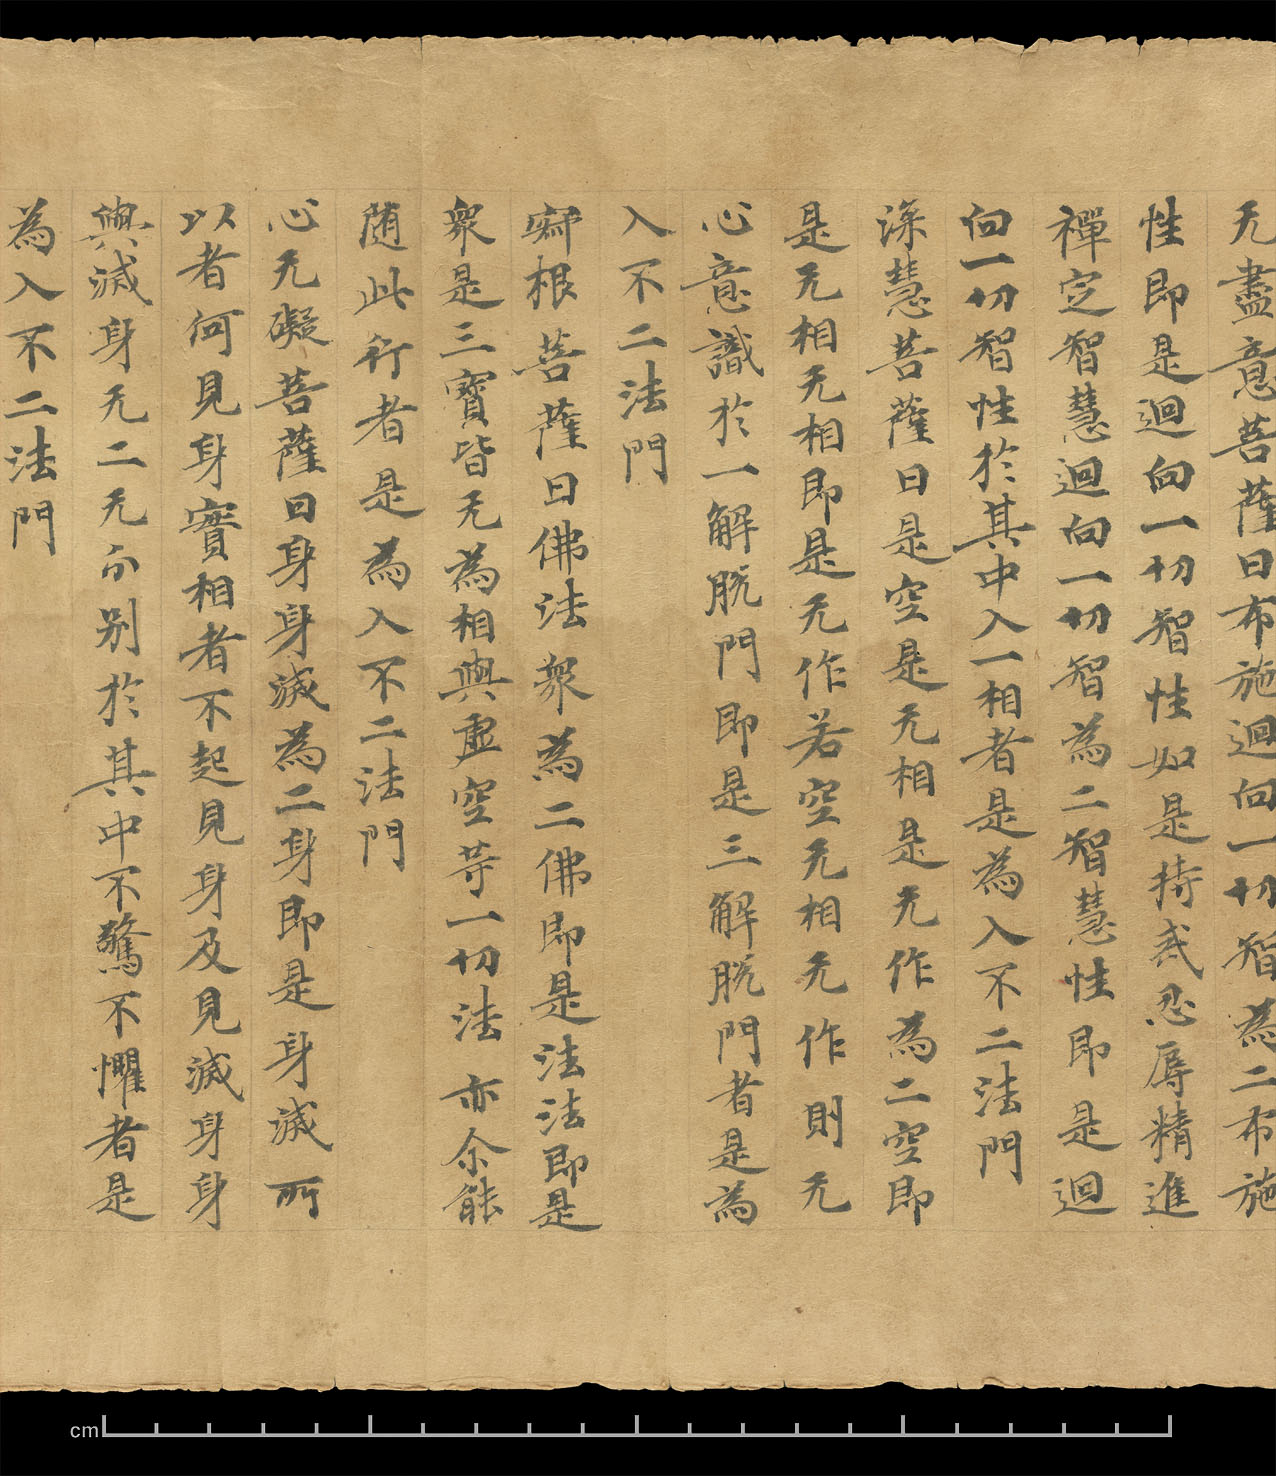 无盡意菩薩曰布施迴向一切智為二布施
性即是迴向一切智性如是持戒忍辱精進
禪定智慧迴向一切智為二智慧性即是迴
向一切智性於其中入一相者是為入不二法門
深慧菩薩曰是空是无相是无作為二空即
是无相无相即是无作若空无相无作則无
心意識於一解脫門即是三解脫門者是為
入不二法門
寂根菩薩曰佛法衆為二佛即是法法即是
衆是三寶皆无為相與虛空等一切法亦尒能
随此行者是為入不二法門
心无礙菩薩曰身身滅為二身即是身滅所
以者何見身實相者不起見身及見滅身身
與滅身无二无分别於其中不驚不懼者是
為入不二法門
cm